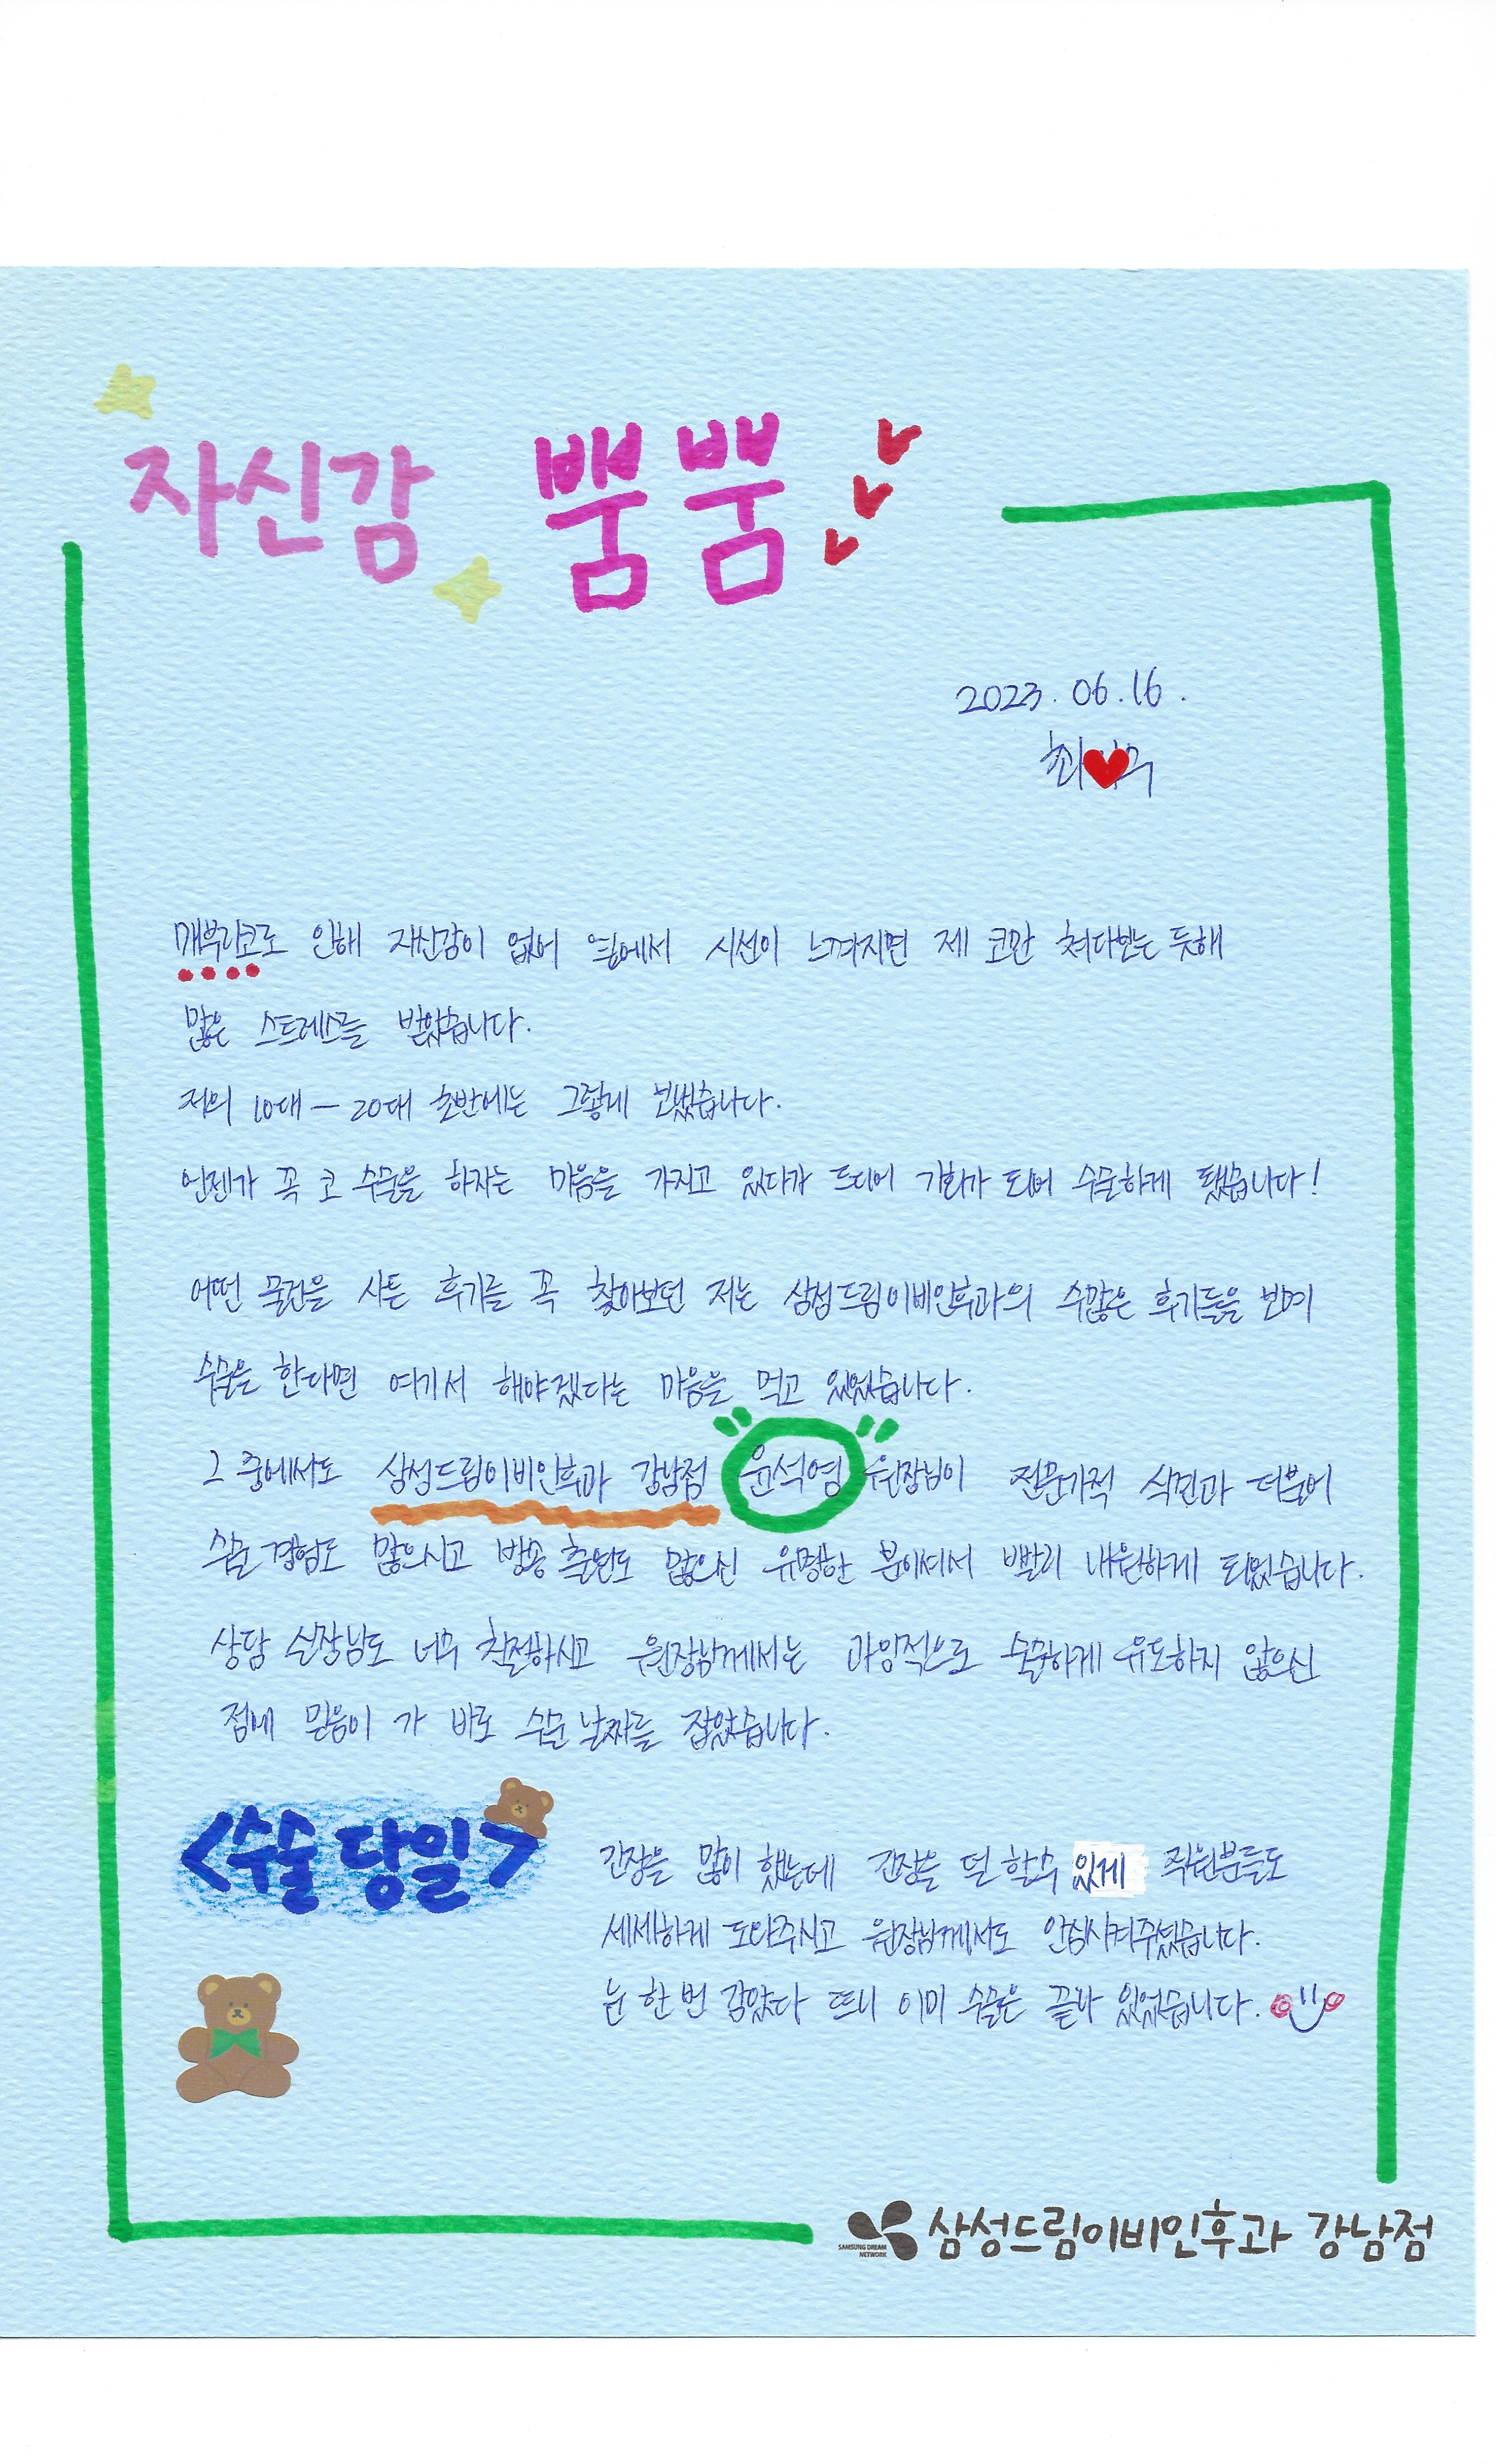 자신감 뿜뿜
2023. 06. 16.
최
매부리코로 인해 자신감이 없어 옆에서 시선이 느껴지면 제 코만 쳐다보는 듯해
많은 스트레스를 받았습니다.
저의 10대 - 20대 초반에는 그렇게 보냈습니다.
언젠가 꼭 코 수술을 하자는 마음을 가지고 있다가 드디어 기회가 되어 수술하게 됐습니다!
어떤 물건을 사든 후기를 꼭 찾아보던 저는 삼성드림이비인후과의 수많은 후기들을 보며
수술을 한다면 여기서 해야겠다는 마음을 먹고 있었습니다.
그 중에서도 삼성드림이비인후과 강남점 윤석영 원장님이 전문가적 식견과 더불어
수술 경험도 많으시고 방송 출연도 많으신 유명한 분이셔서 빨리 내원하게 되었습니다.
상담 실장님도 너무 친절하시고 원장님께서는 과잉적으로 수술하게 유도하지 않으신
점에 믿음이 가 바로 수술 날짜를 잡았습니다.
<수술 당일>
긴장을 많이 했는데 긴장을 덜 할수 있게 직원분들도
세세하게 도와주시고 원장님께서도 안심시켜주셨습니다.
눈 한 번 감았다 뜨니 이미 수술은 끝나 있었습니다.
SAMSUNG DREAM
NETWORK
삼성드림이비인후과 강남점